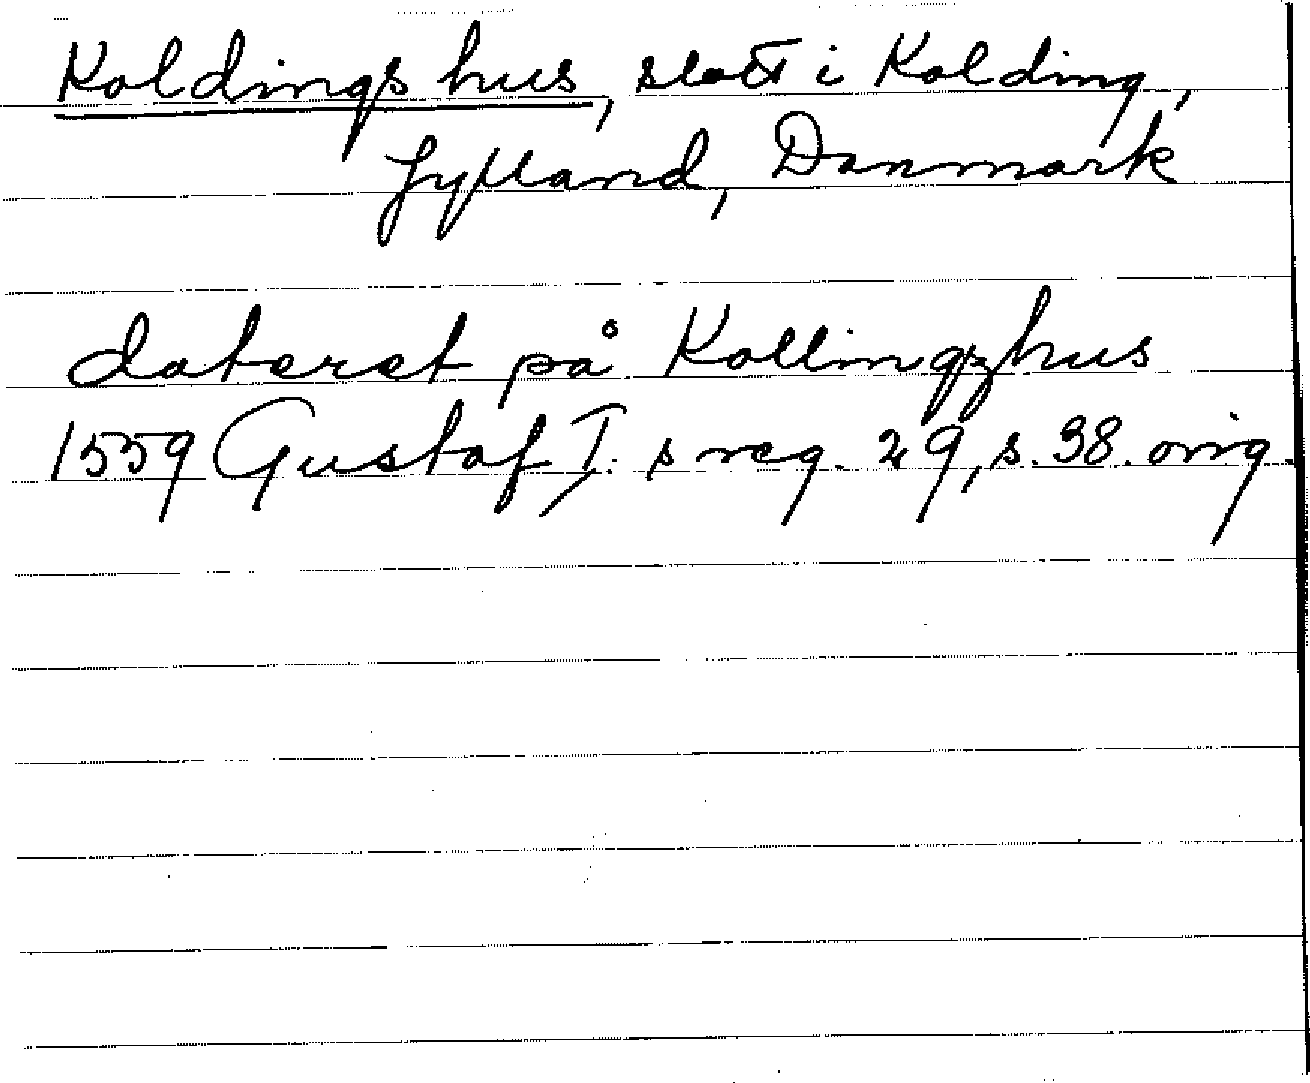 Koldingshus, slott i Kolding,
Jylland, Danmark
dateret på Kollingzhus
1559 Gustaf I:s reg. 29, s. 38. orig.